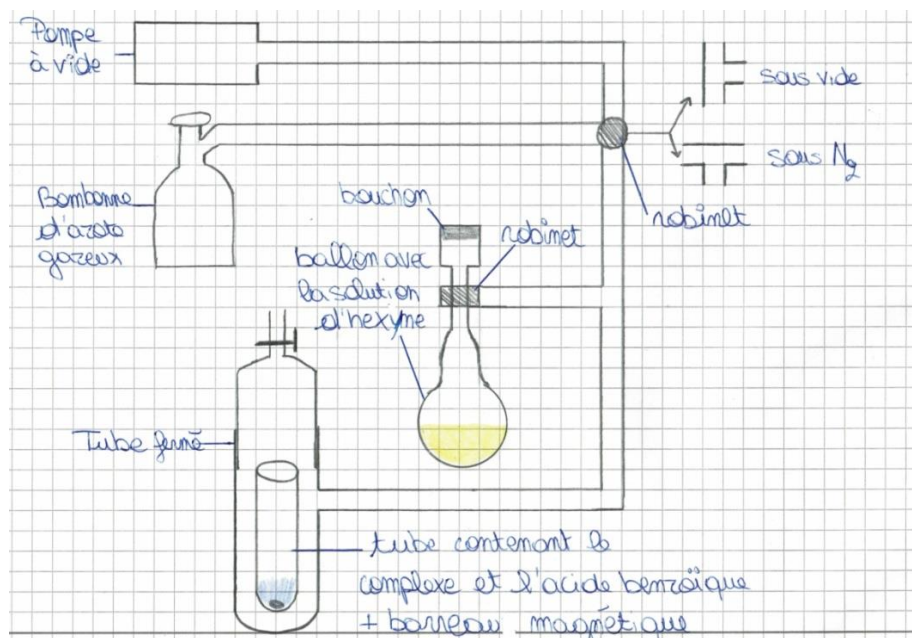 Pompe
à vide
sous vide
sous N2
robinet
Bombonne
d'azote
gazeux
bouchon
robinet
ballon avec
la solution
d'hexyne
Tube fermé
tube contenant le
complexe et l'acide benzoïque
+ barreau magnétique